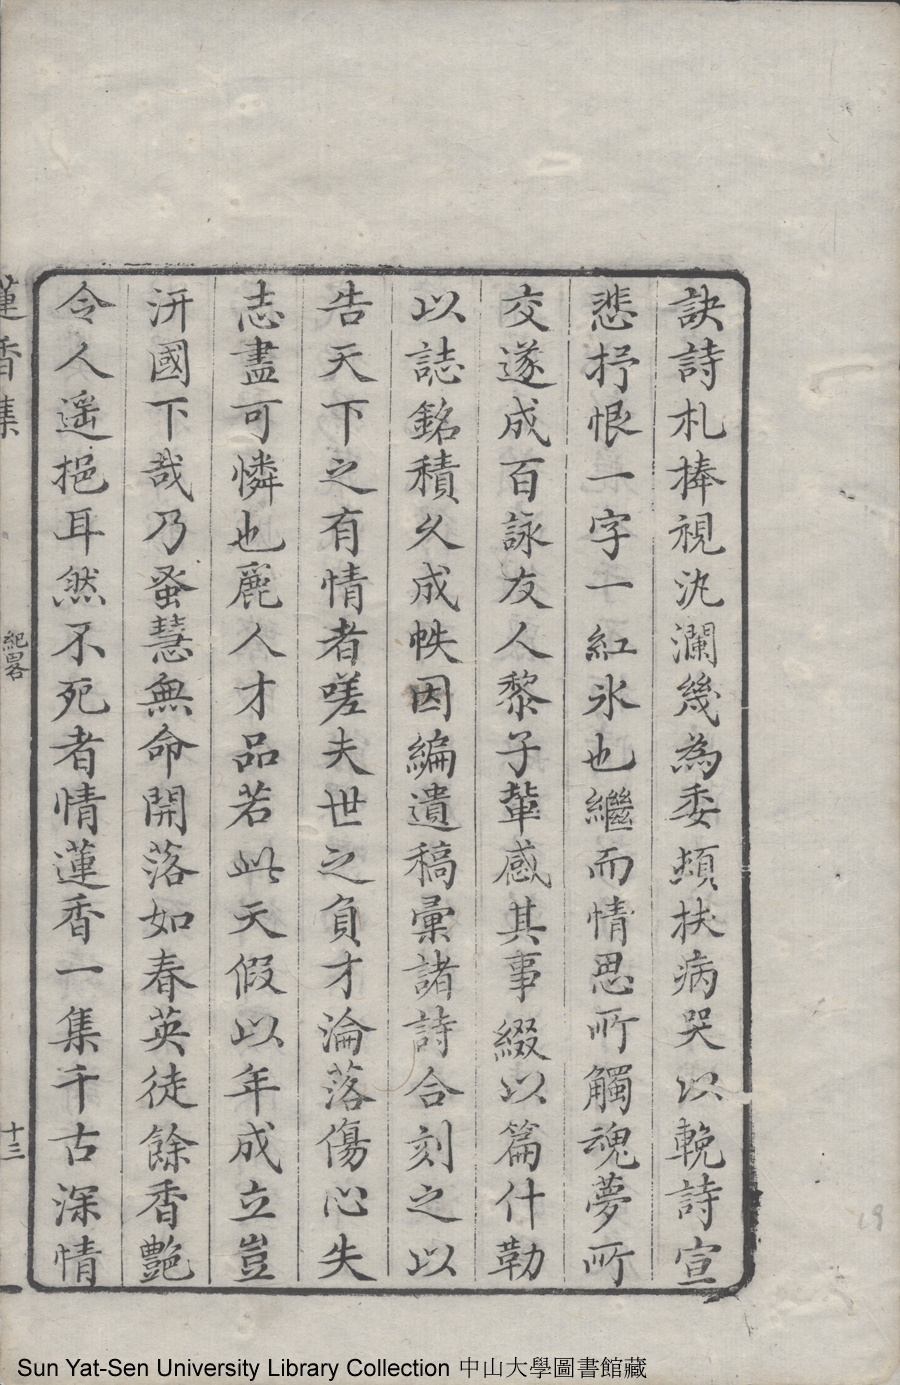 訣詩札捧視汍瀾幾為委頓扶病哭以輓詩宣
悲抒恨一字一紅氷也繼而情思所觸魂夢所
交遂成百詠友人黎子輩感其事綴以篇什勒
以誌銘積久成帙因編遺稿彙諸詩合刻之以
告天下之有情者嗟夫世之負才淪落傷心失
志盡可憐也麗人才品若此天假以年成立豈
汧國下哉乃蚤慧無命開落如春英徒餘香艷
令人遥挹耳然不死者情蓮香一集千古深情
蓮香集
紀畧
十三
19
Sun Yat-Sen University Library Collection 中山大學圖書館藏